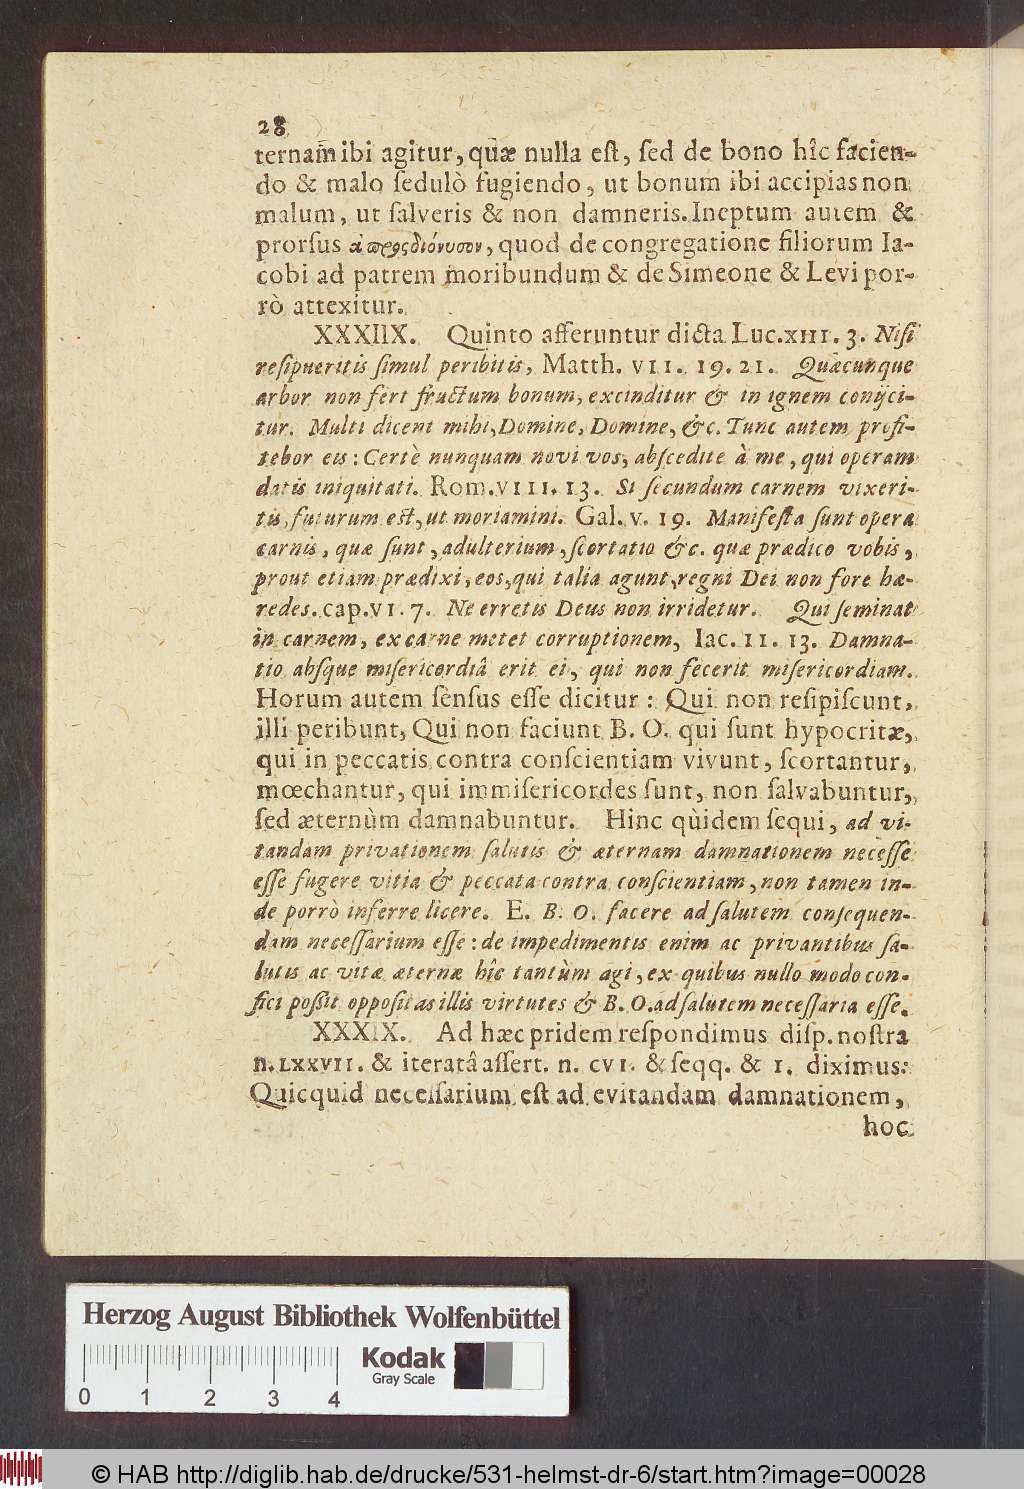 28
ternam ibi agitur, quæ nulla eſt, ſed de bono hîc facien-
do & malo ſedulò fugiendo, ut bonum ibi accipias non
malum, ut ſalveris & non damneris. Ineptum autem &
prorſus ἀπροςδιόνυσον, quod de congregatione filiorum Ia-
cobi ad patrem moribundum & de Simeone & Levi por-
rò attexitur.
XXXIIX. Quinto afferuntur dicta Luc. XIII. 3. Niſi
reſipueritis ſimul peribitis, Matth. VII. 19. 21. Quæcunque
arbor non fert fructum bonum, excinditur & in ignem conijci-
tur. Multi dicent mihi, Domine, Domine, &c. Tunc autem profi-
tebor eis: Certè nunquam novi vos, abſcedite à me, qui operam
datis iniquitati. Rom. VIII. 13. Si ſecundum carnem vixeri-
tis, futurum eſt, ut moriamini. Gal. v. 19. Manifeſta ſunt opera
carnis, quæ ſunt, adulterium, ſcortatio &c. quæ prædico vobis,
prout etiam prædixi, eos, qui talia agunt, regni Dei non fore hæ-
redes. cap. VI. 7. Ne erretis Deus non irridetur. Qui ſeminat
in carnem, ex carne metet corruptionem, Iac. II. 13. Damna-
tio abſque miſericordiâ erit ei, qui non fecerit miſericordiam.
Horum autem ſenſus eſſe dicitur: Qui non reſipiſcunt,
illi peribunt, Qui non faciunt B. O. qui ſunt hypocritæ,
qui in peccatis contra conſcientiam vivunt, ſcortantur,
mœchantur, qui immiſericordes ſunt, non ſalvabuntur,
ſed æternùm damnabuntur. Hinc quidem ſequi, ad vi-
tandam privationem ſalutis & æternam damnationem neceſſe
eſſe fugere vitia & peccata contra conſcientiam, non tamen in-
de porrò inferre licere. E. B. O. facere ad ſalutem conſequen-
dam neceſſarium eſſe: de impedimentis enim ac privantibus ſa-
lutis ac vitæ æternæ hîc tantùm agi, ex quibus nullo modo con-
fici poſſit oppoſitas illis virtutes & B. O. ad ſalutem neceſſaria eſſe.
XXXIX. Ad hæc pridem reſpondimus diſp. noſtra
n. LXXVII. & iteratâ aſſert. n. CVI. & ſeqq. & I. diximus:
Quicquid neceſſarium eſt ad evitandam damnationem,
hoc
Herzog August Bibliothek Wolfenbüttel
0 1 2 3 4
Kodak
Gray Scale
© HAB http://diglib.hab.de/drucke/531-helmst-dr-6/start.htm?image=00028